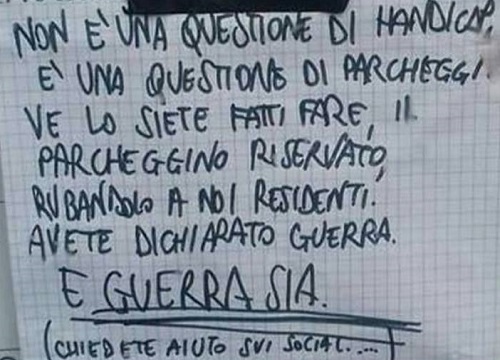 NON E' UNA QUESTIONE DI HANDICAP,
E' UNA QUESTIONE DI PARCHEGGI.
VE LO SIETE FATTI FARE, IL
PARCHEGGINO RISERVATO,
RUBANDOLO A NOI RESIDENTI.
AVETE DICHIARATO GUERRA.
E GUERRA SIA.
(CHIEDETE AIUTO SUI SOCIAL.....)